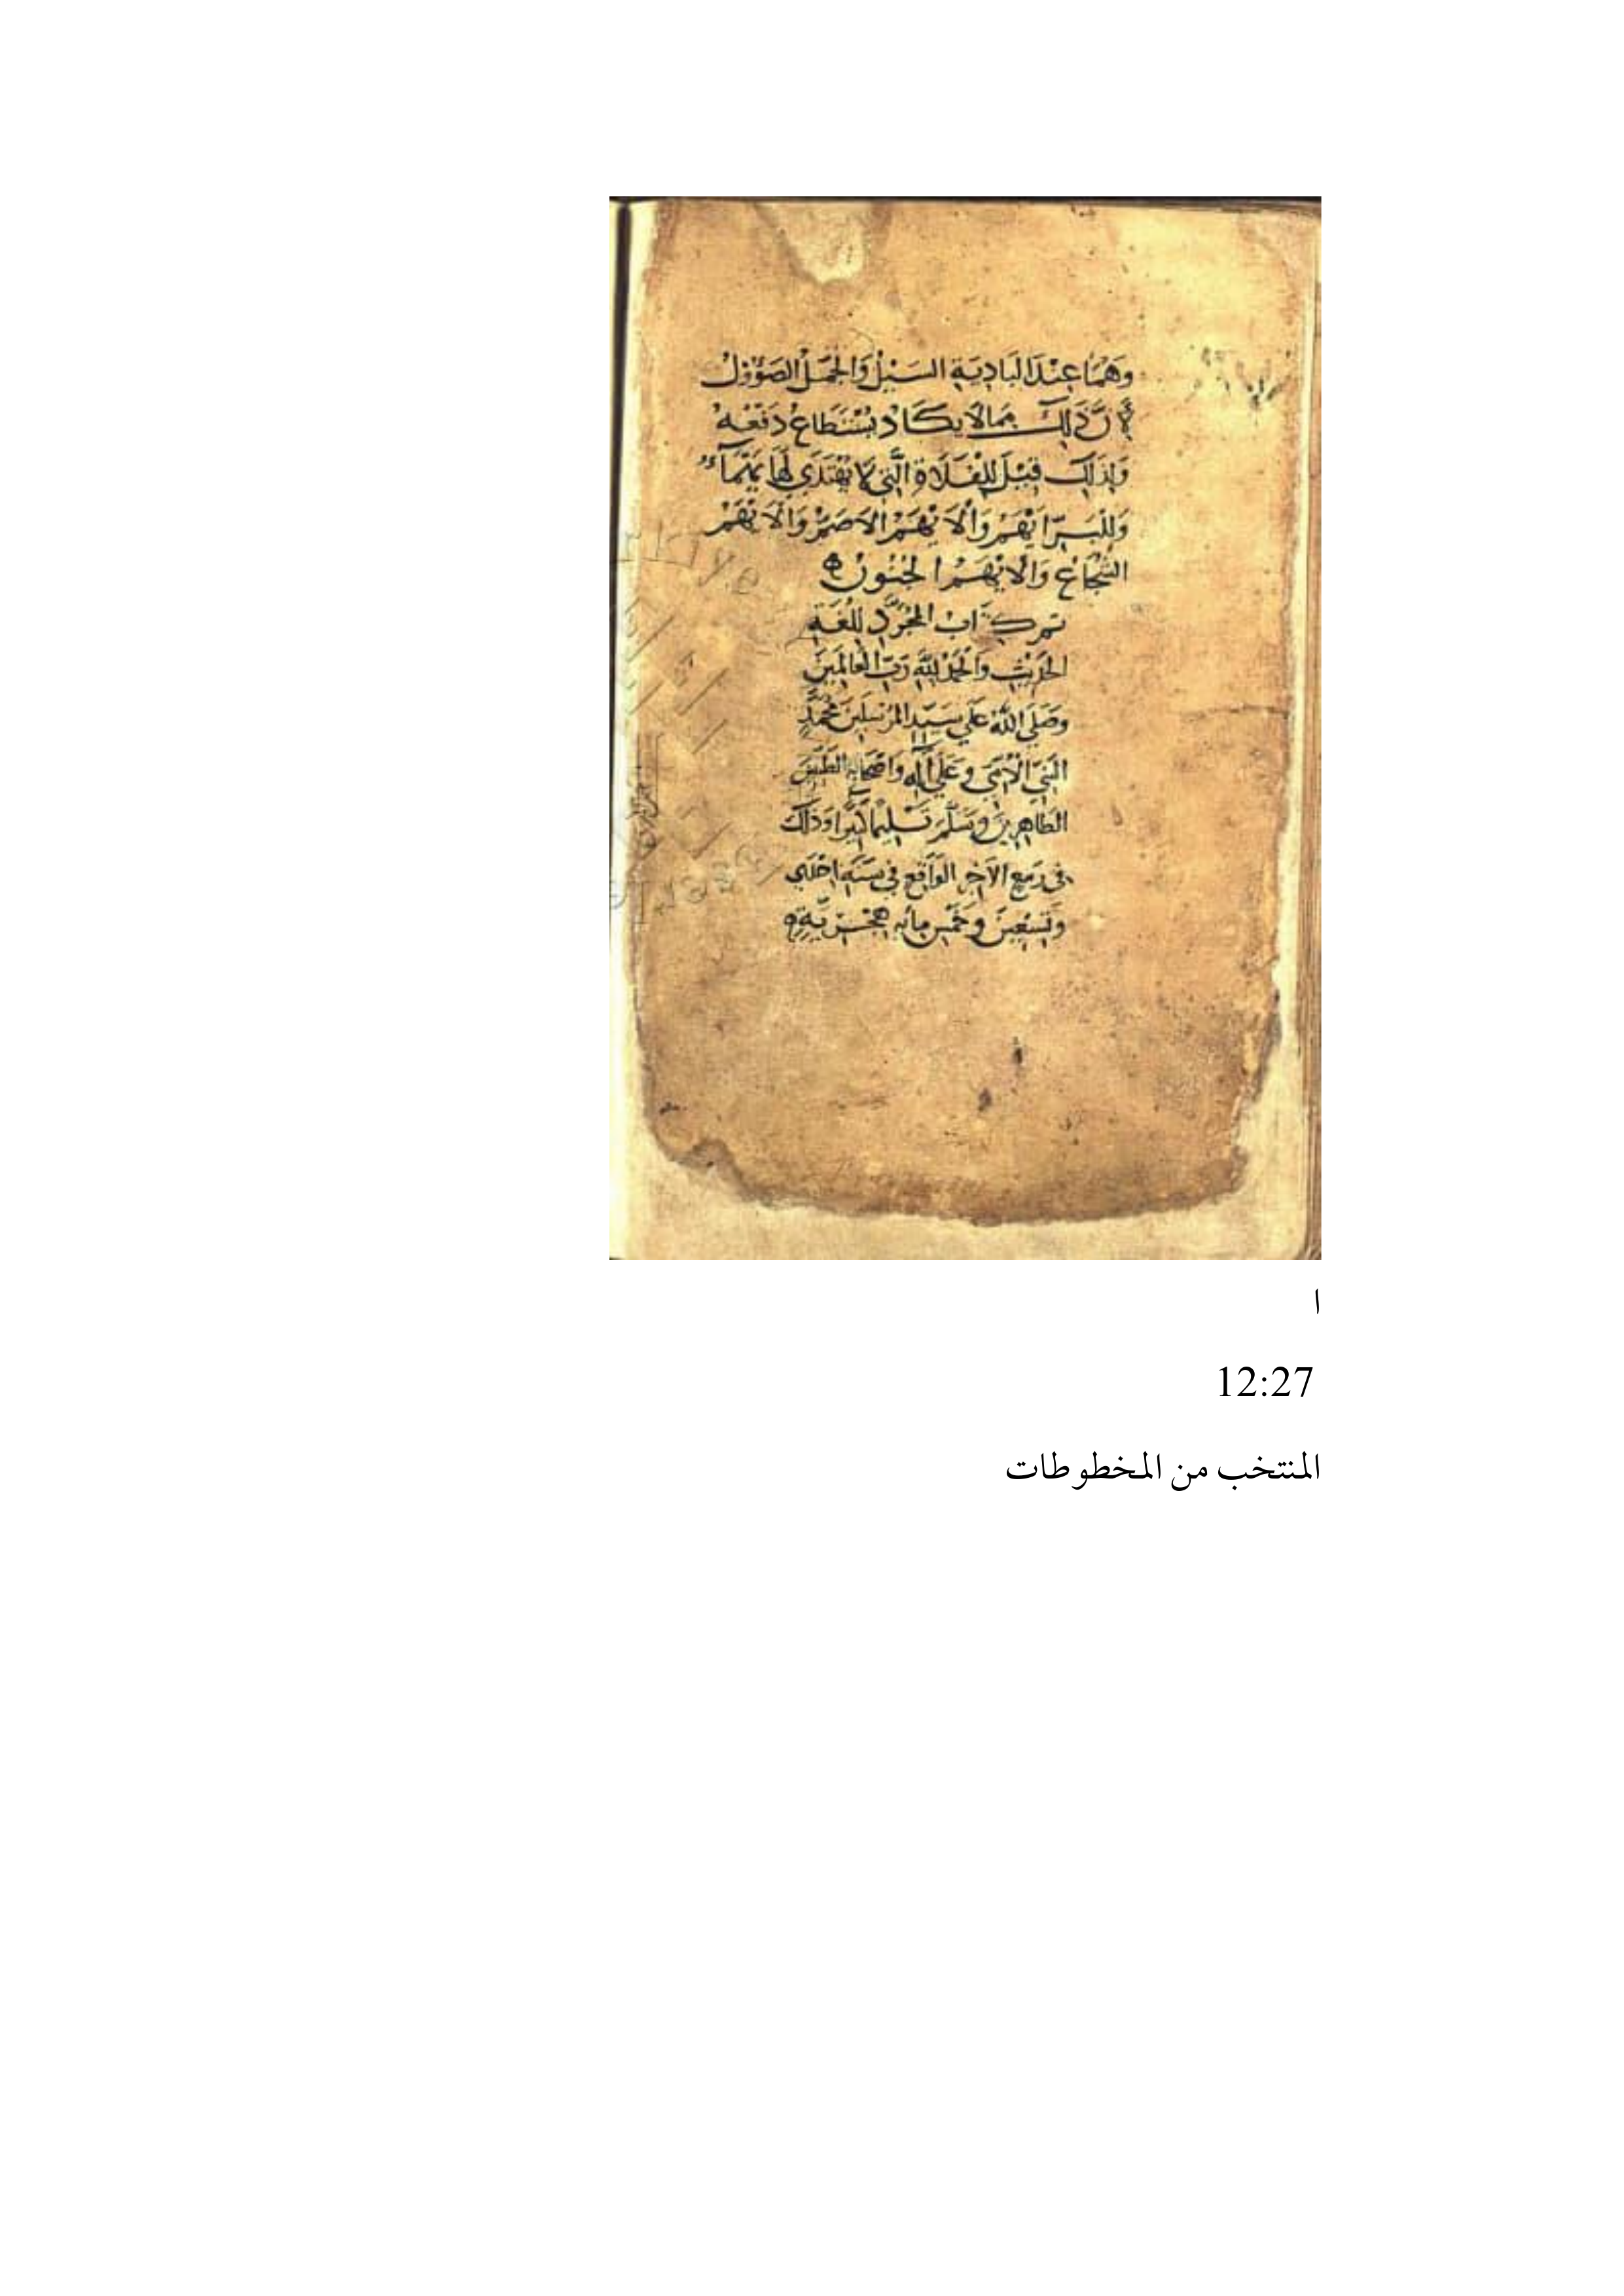 وَهُمَا عِنْدَ الْبَادِيَةِ السَّيْلُ وَالْجَمَلُ الصَّؤُوْلُ
لِأَنَّ ذَلِكَ مِمَا لَا يَكَادُ يُسْتَطَاعُ دَفْعُهُ
وَلِذَلِكَ قِيْلَ لِلْفَلَاةِ الَّتِي لَا يُهْتَدَي لَهَا يَهْمَآءُ
وَلِلْبَرِّ أَيْهَمُ وَالْأَيْهَمُ الْأَصَمُّ وَالْأَيْهَمُ
الشُّجَاعُ وَالْأَيْهَمُ الْجُنُونُ
تم كِتَابُ الْمُجَرَّدِ لِلُغَةِ
الْحَدِيْثِ وَالْحَمْدُ لِلَّهِ رَبِّ الْعَالَمِيْنَ
وَصَلَّى اللَّهُ عَلَي سَيِّدِ الْمُرْسَلِيْنَ مُحَمَّدٍ
النَّبِيِّ الْأُمِّيِّ وَعَلَى آلِهِ وَأَصْحَابِهِ الطَّيِّبِيْنَ
الطَّاهِرِيْنَ وَسَلَّمَ تَسْلِيْمًا كَثِيْرًا وَذَلِكَ
فِي رَبِيْعِ الْآخِرِ الْوَاقِعِ فِي سَنَةِ احْدَي
وَتِسْعِيْنَ وَخَمْسِ مِائَهِ هِجْرِيَّةٍ
ا
12:27
المنتخب من المخطوطات